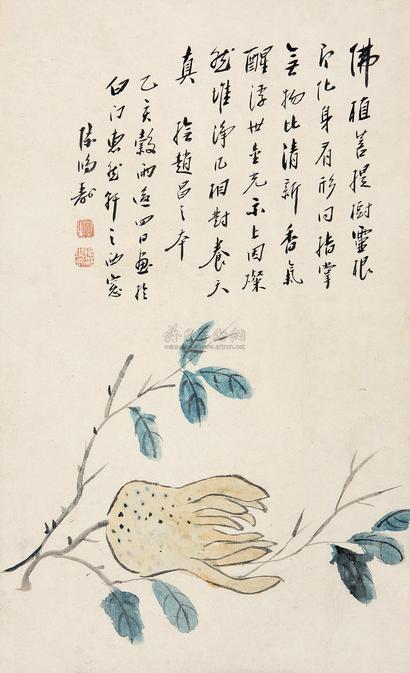 佛植菩提樹靈根
乃化身有形同指掌
無物比清新香氣
醒浮世金光示上因燦
然堆淨几相對養天
真 橅趙昌之本
乙亥穀雨這四日畫於
白門惠然軒之西窗
陳鴻壽